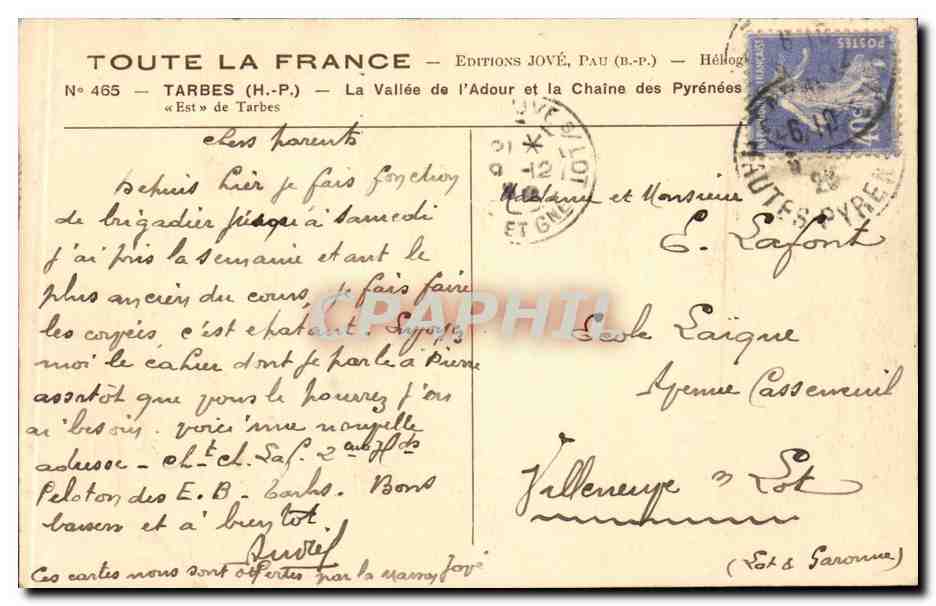 TOUTE LA FRANCE — EDITIONS JOVÉ, PAU (B.-P.) — Héliog
N° 465 — TARBES (H.-P.) — La Vallée de l'Adour et la Chaîne des Pyrénées
« Est » de Tarbes
POSTES
40c
HAUTES PYREN
6.10
28
VE S/ LOT
12
ET GNE
chers parents
Depuis hier je fais fonction
de brigadier jusqu'à samedi
j'ai pris la semaine etant le
plus ancien du cours, je fais faire
les corvées, c'est epatant. Envoyez
moi le cahier dont je parle à Pierre
assitôt que vous le pourrez j'en
ai besoin. Voici ma nouvelle
adresse - ch. Laf. 2
Peloton des E.B - Tarbes. Bons
baisers et à bientot
André
Ces cartes nous sont offertes par la maison Jové
Madame et Monsieur
E. Lafont
Ecole Laïque
Avenue Casseneuil
Villeneuve s Lot
(Lot & Garonne)
CPAPHIL